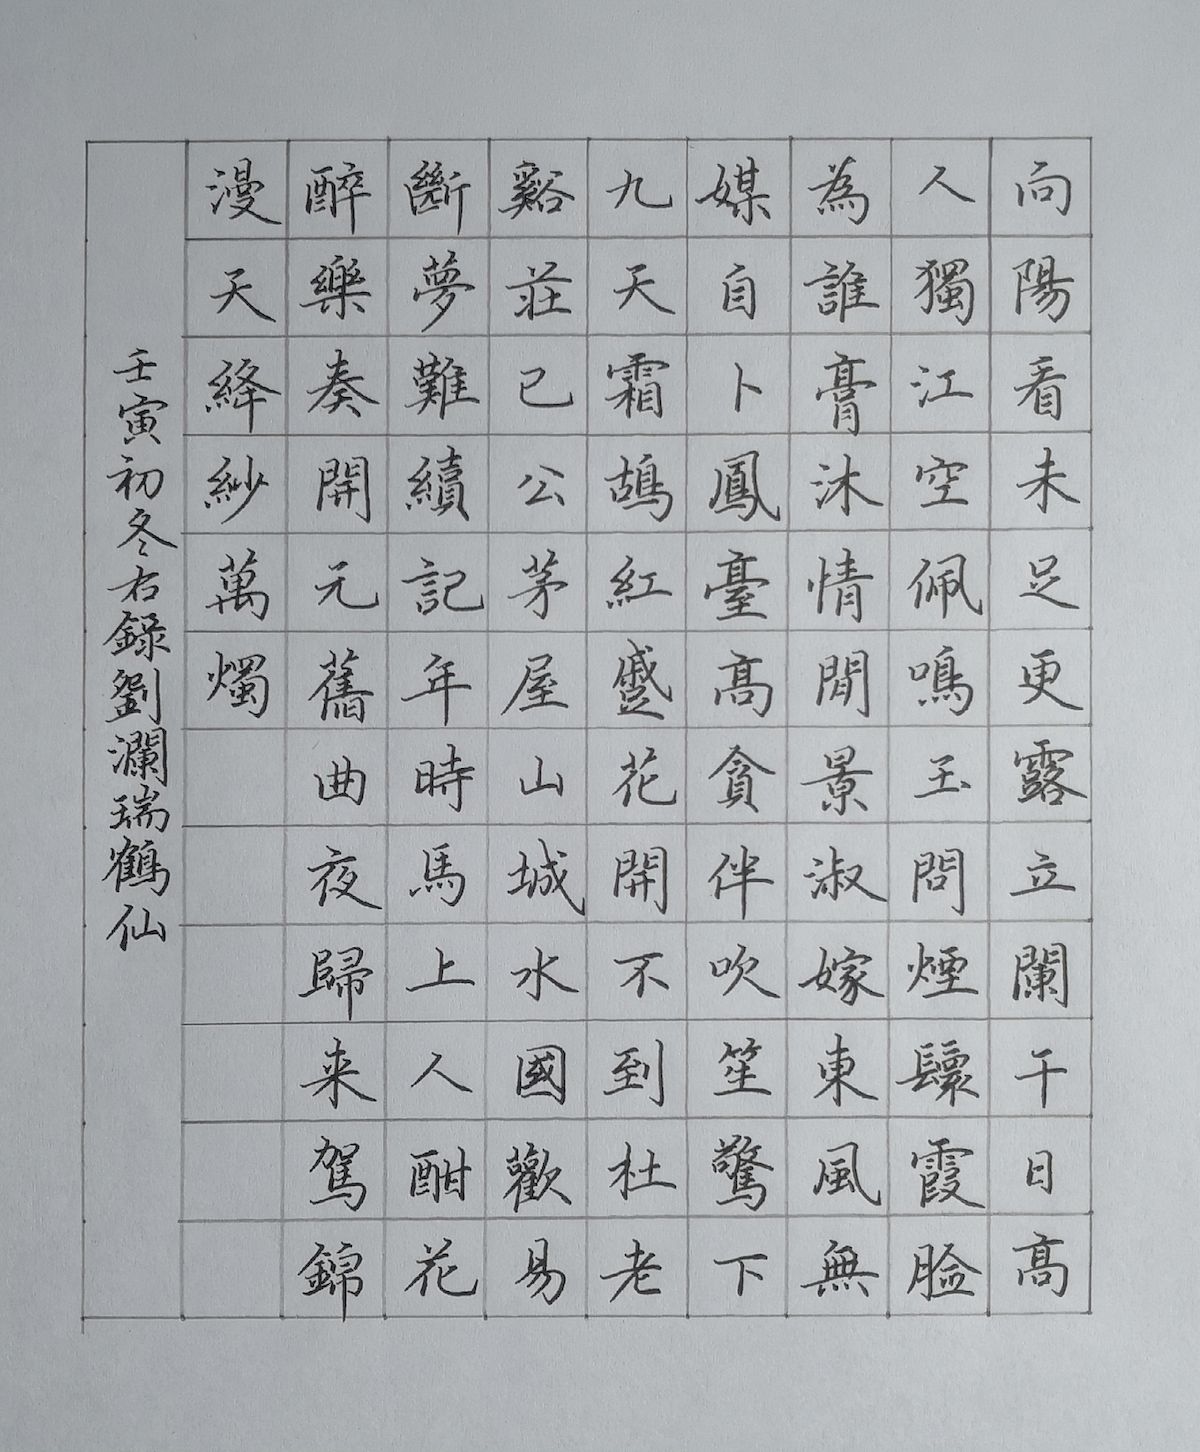 向陽看未足更露立闌干日高
人獨江空佩鳴玉問煙鬟霞臉
為誰膏沐情閒景淑嫁東風無
媒自卜鳳臺高貪伴吹笙驚下
九天霜鵠紅蹙花開不到杜老
谿莊已公茅屋山城水國歡易
斷夢難續記年時馬上人酣花
醉樂奏開元舊曲夜歸来駕錦
漫天絳紗萬燭
壬寅初冬右錄劉瀾瑞鶴仙